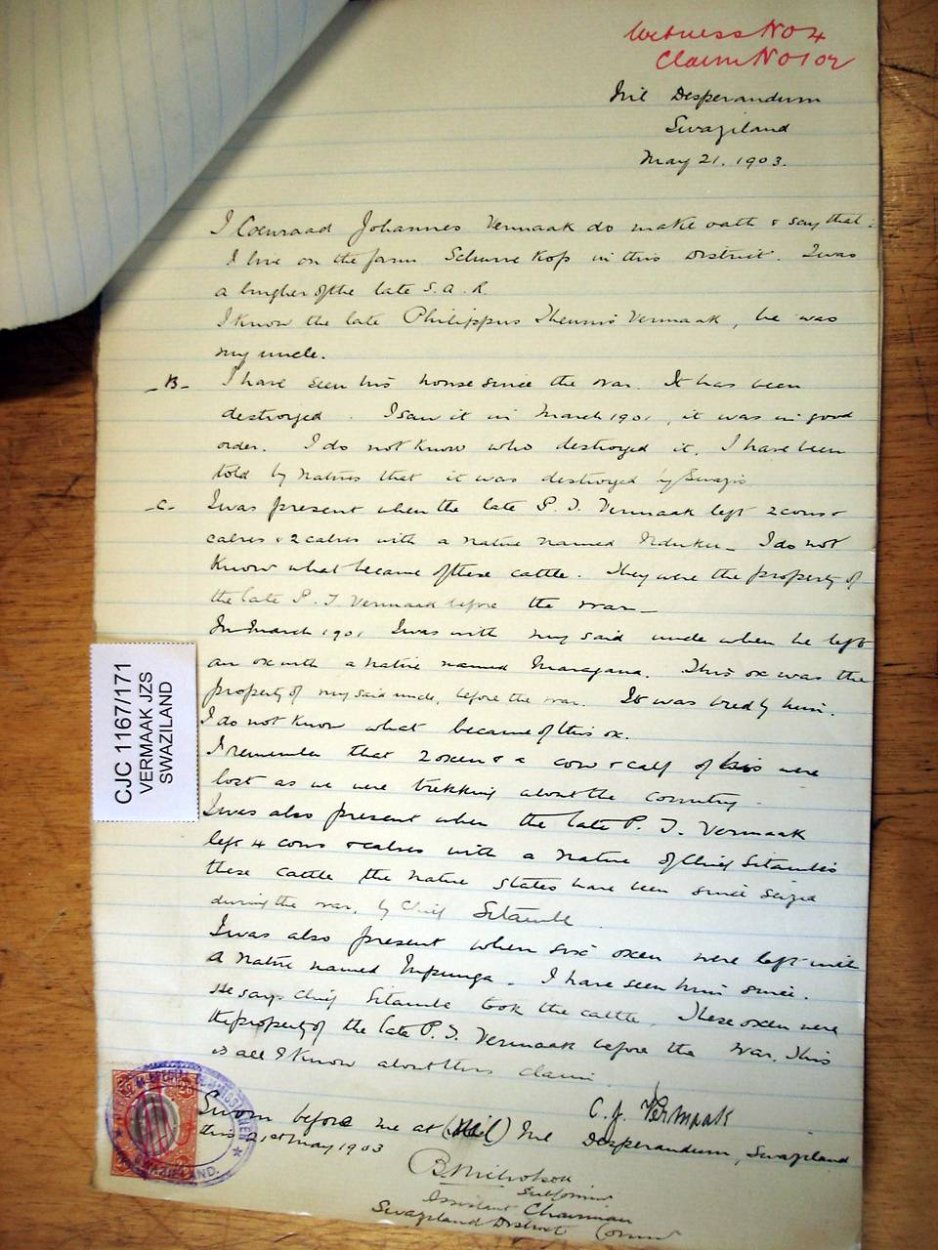 Witness No 4
Claim No 102
Nil Desperandum
Swaziland
May 21. 1903.
I Coenraad Johannes Vermaak do make oath & say that:
I live on the farm Scheurve Kop in this District. I was
a burgher of the late S. A. R.
I know the late Philippus Theunis Vermaak, he was
my uncle.
- B - I have seen his house since the war. It has been
destroyed. I saw it in March 1901, it was in good
order. I do not know who destroyed it. I have been
told by natives that it was destroyed by Swazis
- C - I was present when the late P. T. Vermaak left 2 cows &
calves & 2 calves with a native named - I do not
know what became of these cattle. They were the property of
the late P. T. Vermaak before the war -
In March 1901 I was with my said uncle when he left
an ox with a native named Maragana. This ox was the
property of my said uncle, before the war. It was bred by him.
I do not know what became of this ox.
I remember that 2 oxen & a cow & calf of his were
lost as we were trekking about the country.
I was also present when the late P. T. Vermaak
left 4 cows & calves with a native of Chief Sitambe's
these cattle the native states have been since seized
during the war, by Chief Sitambe
I was also present when six oxen were left with
a native named Mpunga. I have seen him since.
He says Chief Sitambe took the cattle. These oxen were
the property of the late P. T. Vermaak before the war. This
is all I know about this claim.
C. J. Vermaak
Sworn before me at (Nil) Nil Desperandum, Swaziland
this 21st May 1903
B Nicholson
Assistant Chairman
Swaziland District Comm
CJC 1167/171
VERMAAK JZS
SWAZILAND